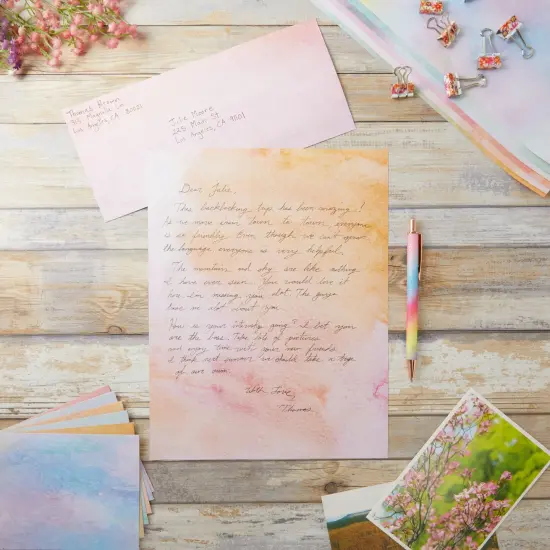 Thomas Brown
315 Magnolia Ln
Los Angeles, CA
Julie Moore
225 Main St.
Los Angeles, CA 9001
Dear Julie,
This backpacking trip has been amazing!
As we move from town to town, everyone
is so friendly. Even though we can't speak
the language everyone is very helpful.
The mountains and sky are like nothing
I have ever seen. You would love it
here. I'm missing you alot. The guys
have no idea what
How is your going? I bet you
are the best. Take lots of pictures
and enjoy time with your new friends.
I think next summer we should take a trip
of our own.
With Love,
Thomas